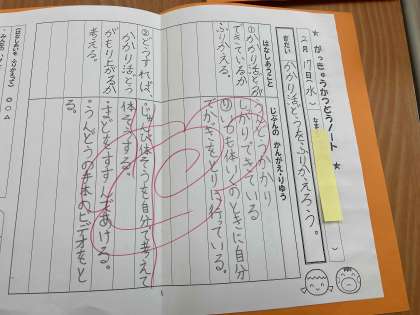 ★ がっきゅうかつどうノート ★
2月17日(水) なまえ( )
ぎだい
かかり活どうをふりかえろう。
はなしあうこと
じぶんの かんがえ・りゆう
①かかり活どうが
できているか
ふりかえる。
うどうかかり
しっかりできている
①いつも体いくのときに自分
でかごをとりに行っている。
②どうすれば、
かかり活どう
がもり上がるか
考える。
じゅんび体そうを自分で考えて
体そうする。
まどをすすんであける。
うんどうの手本のビデオをと
る。
はなしあいを ふりかえろう
◎ ○ △